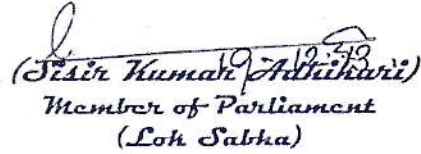 (Sisir Kumar Adhikari)
Member of Parliament
(Lok Sabha)